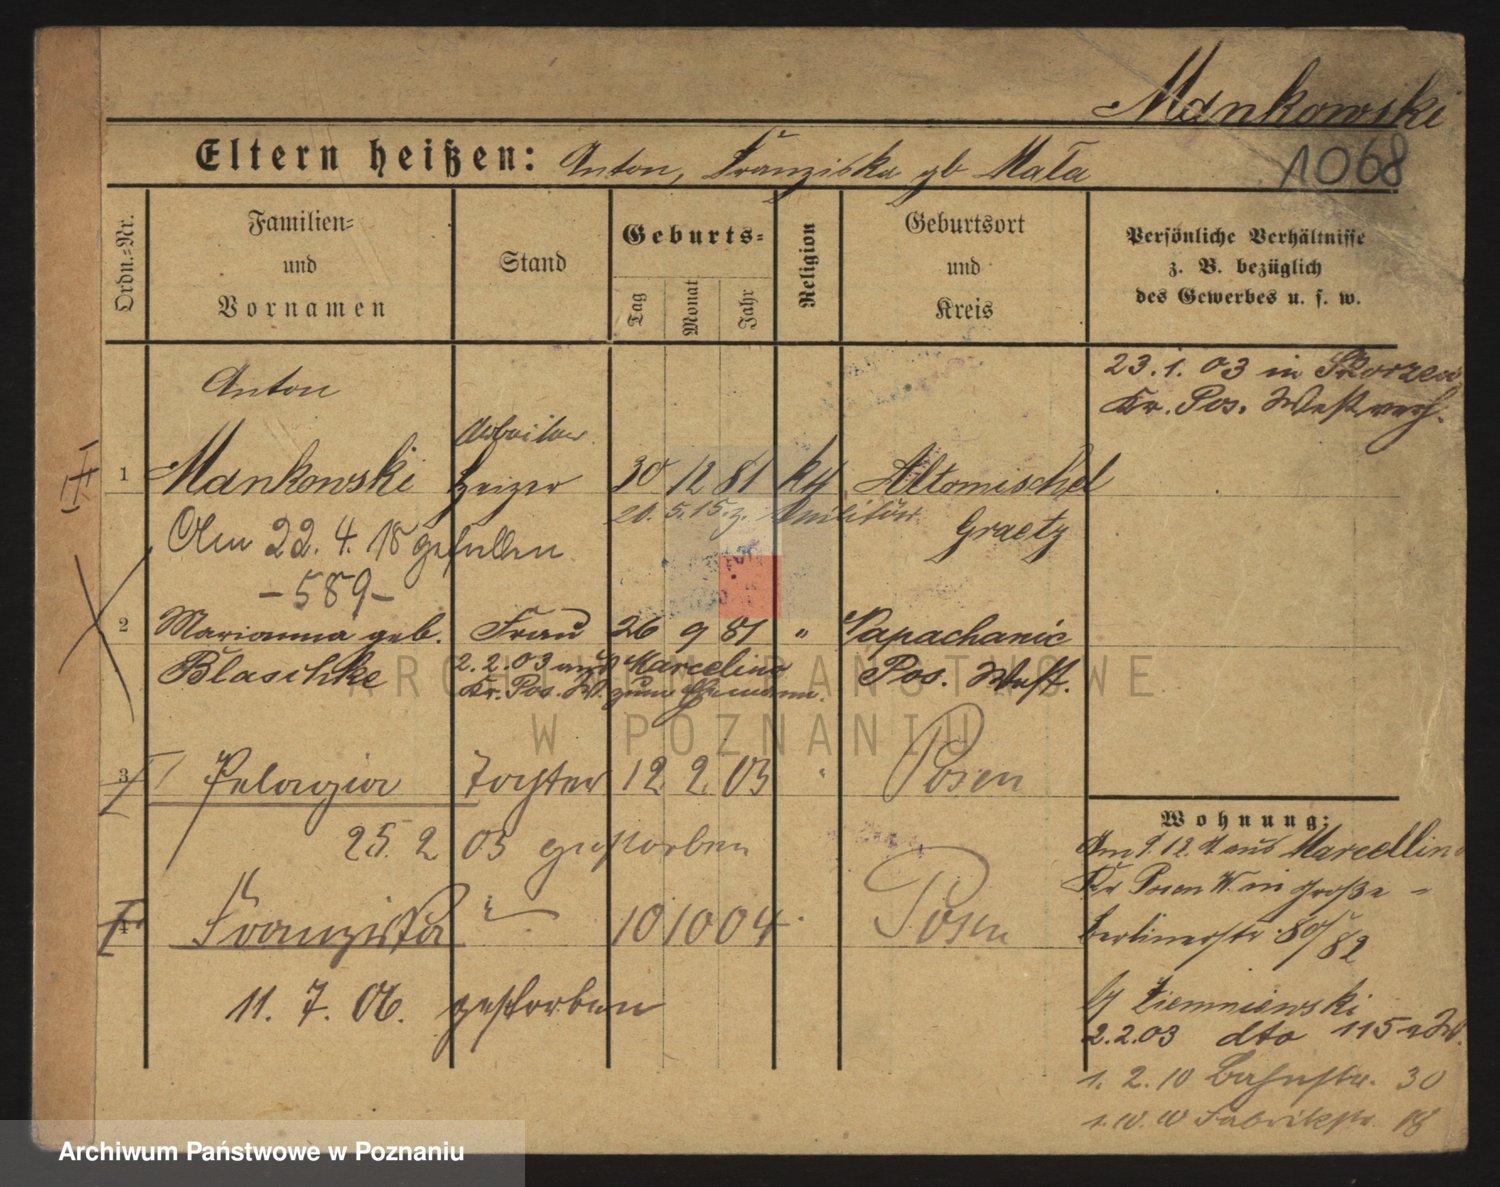 Mankowski
1068
Eltern heißen: Anton, Franziska gb Mała
Ordn.=Nr.
Familien=
und
Vornamen
Stand
Geburts=
Tag
Monat
Jahr
Religion
Geburtsort
und
Kreis
Persönliche Verhältnisse
z. B. bezüglich
des Gewerbes u. s. w.
23. 1. 03 in Skorzewo
Kr. Pos. West verh.
Anton
Arbeiter
1 Mankowski Heizer 30 12 81 kth Altomischel
20. 5. 15. z. Militär Graetz
Am 22. 4. 18 gefallen
- 589 -
2 Marianna geb. Frau 26 9 81 " Papachanie
Blaschke 2. 2. 03 aus Marcelino Pos. West.
Kr. Pos. W. zum Ehemann.
3 Pelagia Tochter 12 2. 03 " Posen
25. 2 03 gestorben
4 Franziska " 10 10 04 Posen
11. 7. 06. gestorben
Wohnung:
Am 9 12. 11 aus Marcellino
Kr Posen W. in Große
berlinerstr. 80/82
by Ziemniewski
2. 2. 03 dto 115
1. 2. 10 Bahnstr. 30
1. 10. 10 Fabrikstr. 18
ARCHIWUM PAŃSTWOWE
W POZNANIU
Archiwum Państwowe w Poznaniu